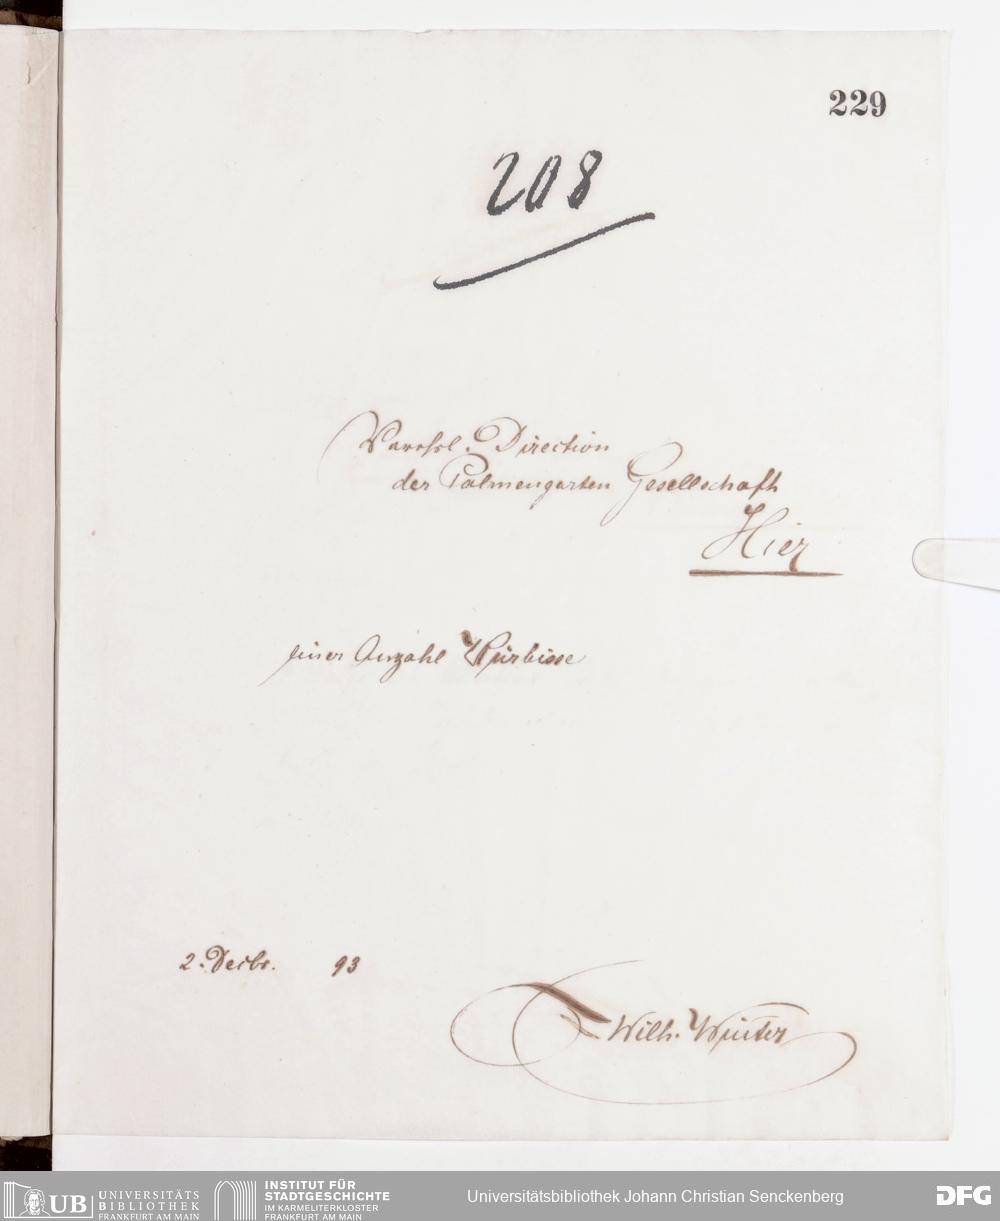 229
208
Verehrl. Direction
der Palmengarten Gesellschaft
Hier
einer Anzahl Kürbisse
2. Decbr. 93
Wilh. Winter
UB UNIVERSITÄTS
BIBLIOTHEK
FRANKFURT AM MAIN
INSTITUT FÜR
STADTGESCHICHTE
IM KARMELITERKLOSTER
FRANKFURT AM MAIN
Universitätsbibliothek Johann Christian Senckenberg
DFG